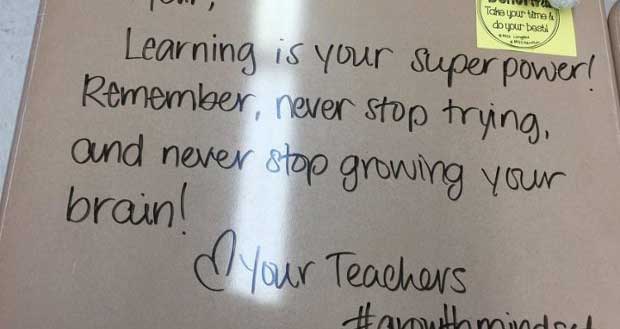 Take your time &
do your best!
Learning is your superpower!
Remember, never stop trying,
and never stop growing your
brain!
♡ Your Teachers